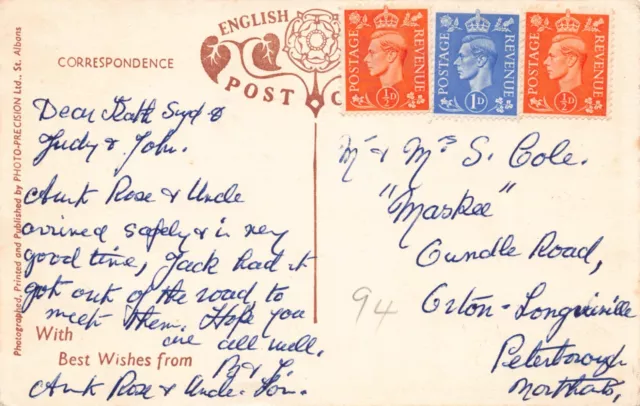 Photographed, Printed and Published by PHOTO-PRECISION Ltd., St. Albans
CORRESPONDENCE
ENGLISH
POST C
POSTAGE REVENUE
½D
POSTAGE REVENUE
1D
POSTAGE REVENUE
½D
Dear Kath Syd &
Judy & John.
Aunk Rose & Uncle
arrived safely & in very
good time, Jack had it
got out of the road to
meet them. Hope you
are all well.
With
Best Wishes from
Aunk Rose & Uncle
Mr & Mrs S. Cole.
"Maskee"
Oundle Road,
Orton-Longueville
Peterborough
Northants,
94